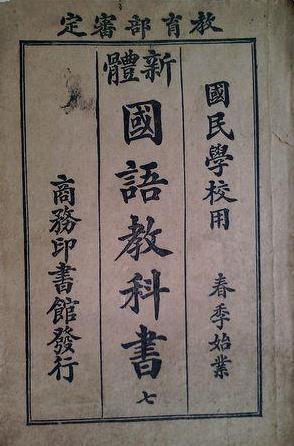 教育部審定
國民學校用 春季始業
新體
國語教科書 七
商務印書館發行